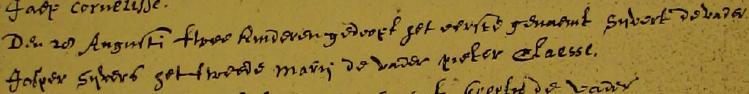 Jaep Cornelisse.
Den 28 Augusti twee kinderen gedoopt het eerste genaemt Sijvert de vader
Jasper Sijvers het tweede Marij de vader Pieter Claesse.
de vader